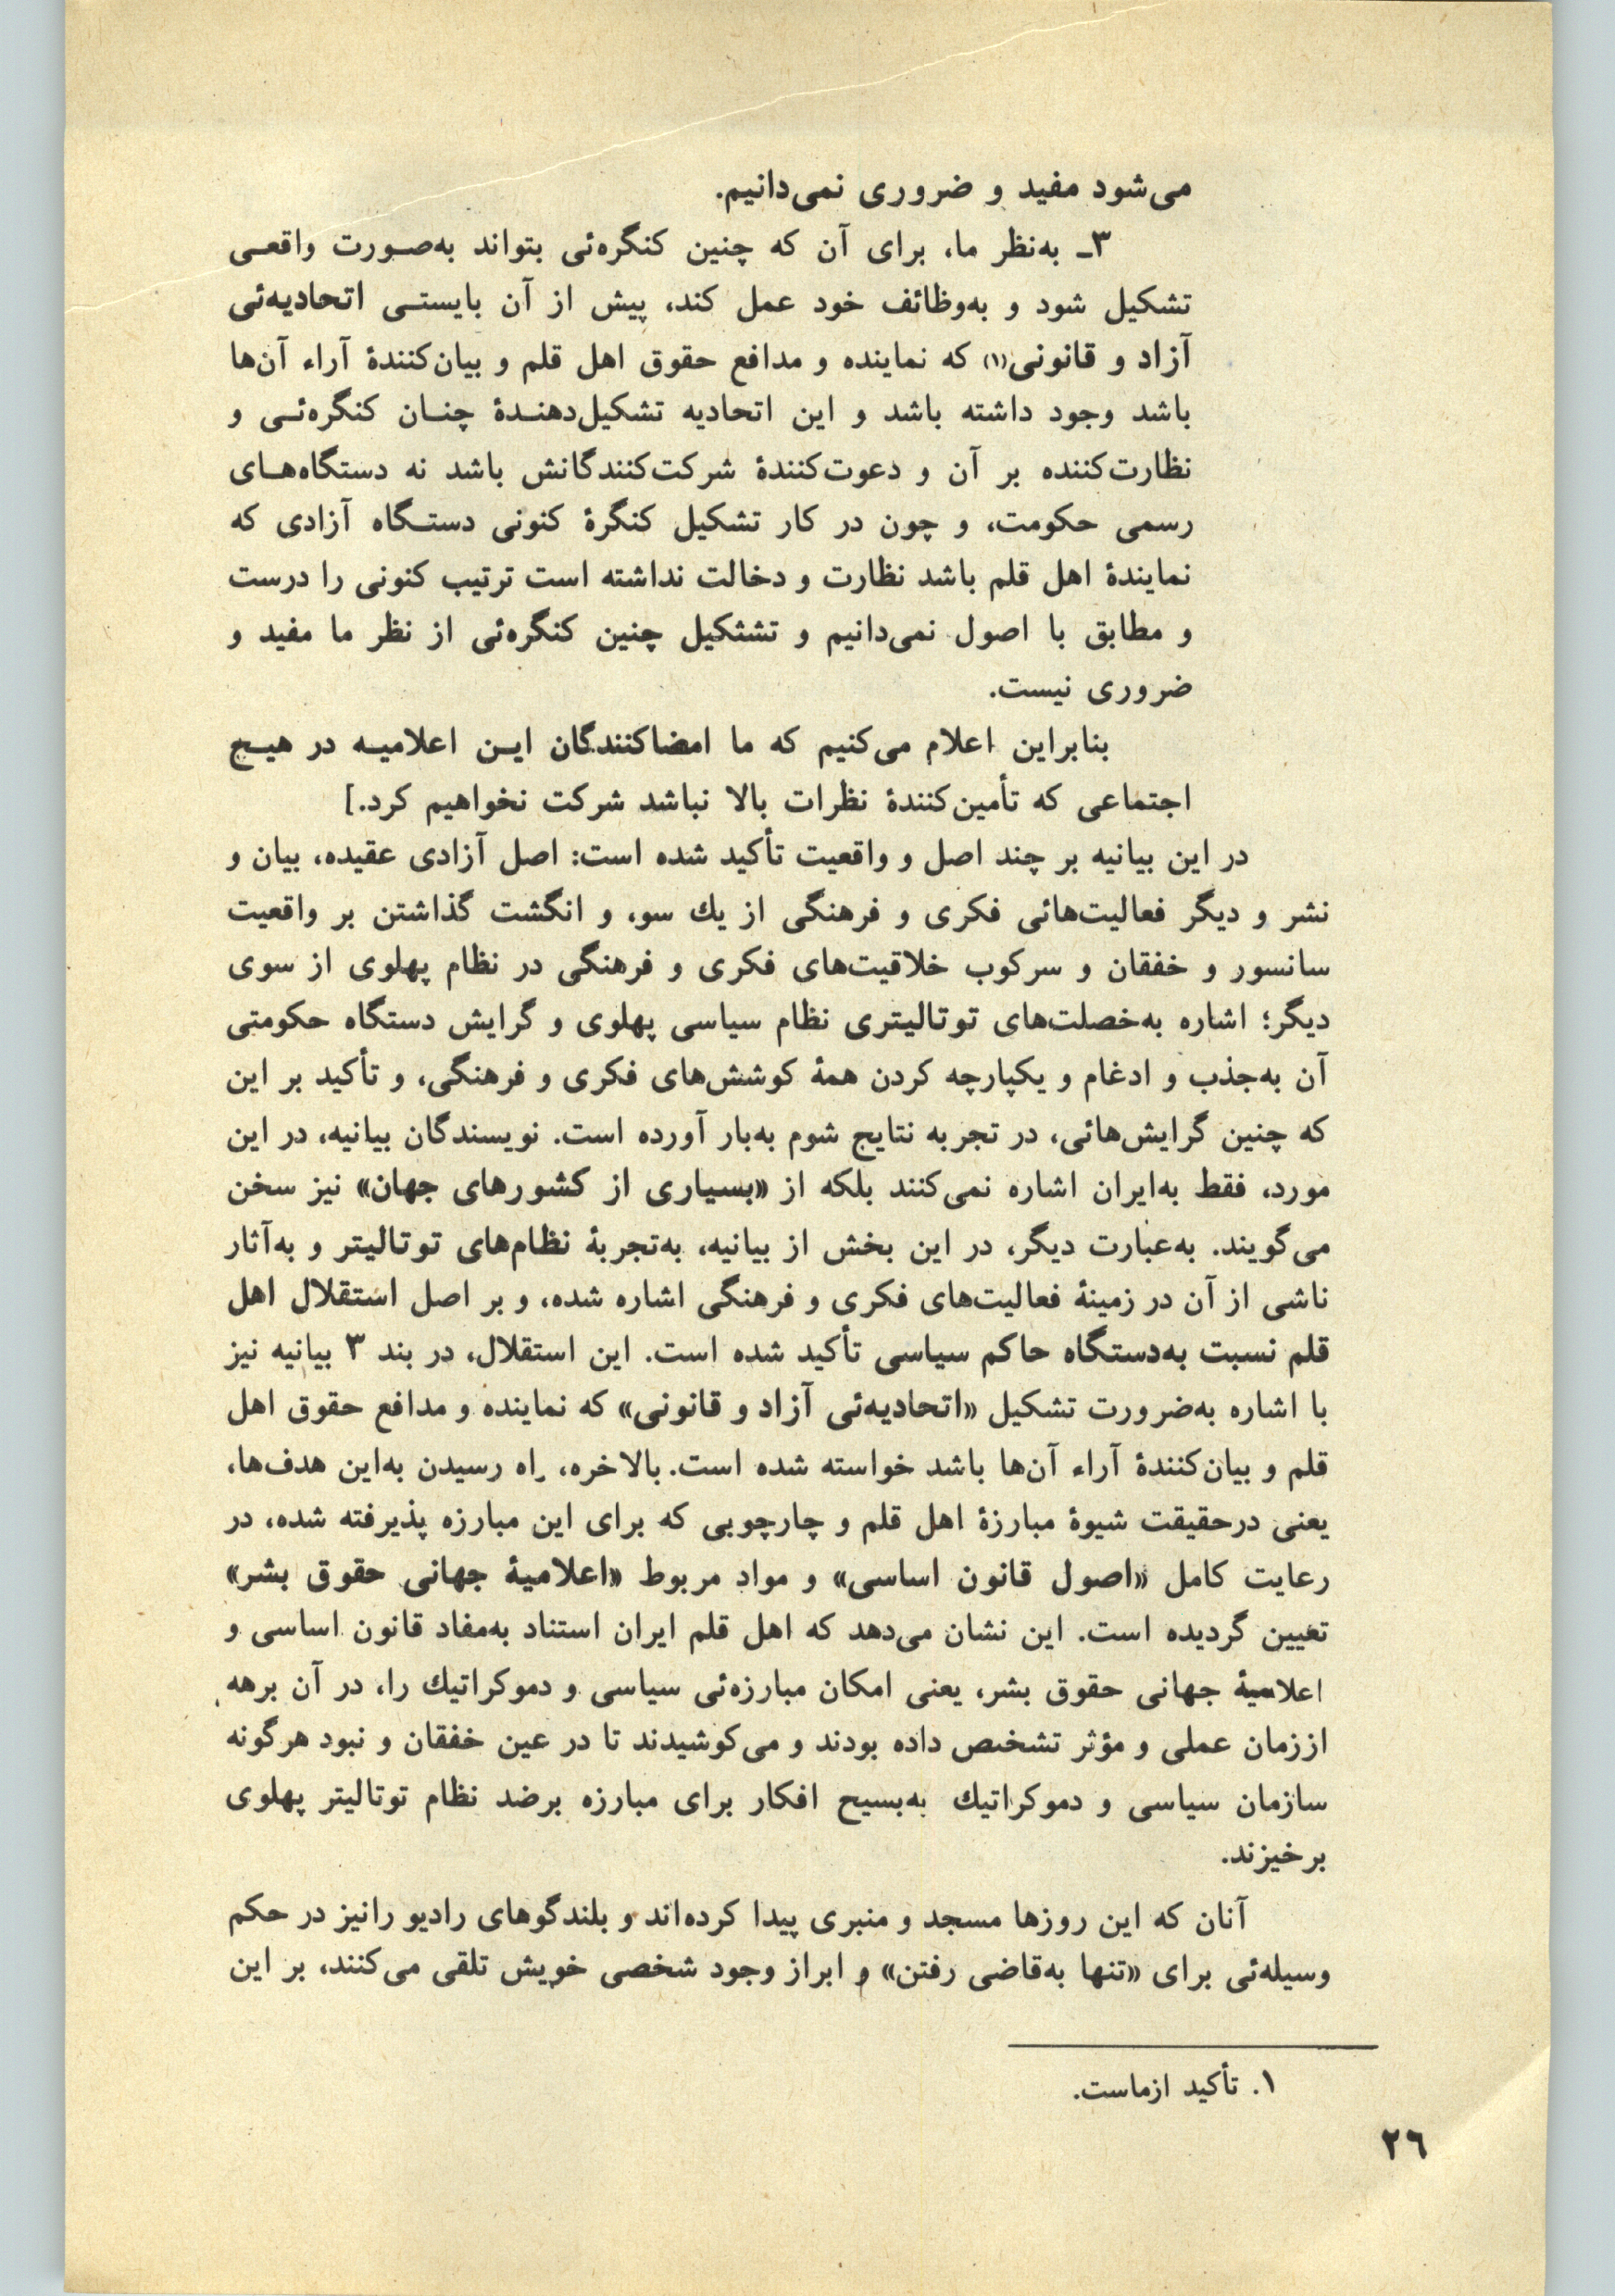 می‌شود مفید و ضروری نمی‌دانیم.
۳ـ به‌نظر ما، برای آن که چنین کنگره‌ئی بتواند به‌صـورت واقعـی
تشکیل شود و به‌وظائف خود عمل کند، پیش از آن بایستـی اتحادیه‌ئی
آزاد و قانونی(۱) که نماینده و مدافع حقوق اهل قلم و بیان‌کنندهٔ آراء آن‌ها
باشد وجود داشته باشد و این اتحادیه تشکیل‌دهنـدهٔ چنـان کنگره‌ئـی و
نظارت‌کننده بر آن و دعوت‌کنندهٔ شرکت‌کنندگانش باشد نه دستگاه‌هـای
رسمی حکومت، و چون در کار تشکیل کنگرهٔ کنونی دستـگاه آزادی که
نمایندهٔ اهل قلم باشد نظارت و دخالت نداشته است ترتیب کنونی را درست
و مطابق با اصول نمی‌دانیم و تشثکیل چنین کنگره‌ئی از نظر ما مفید و
ضروری نیست.
بنابراین اعلام می‌کنیم که ما امضاکنندگان ایـن اعلامیـه در هیـج
اجتماعی که تأمین‌کنندهٔ نظرات بالا نباشد شرکت نخواهیم کرد.]
در این بیانیه بر چند اصل و واقعیت تأکید شده است: اصل آزادی عقیده، بیان و
نشر و دیگر فعالیت‌هائی فکری و فرهنگی از یك سو، و انگشت گذاشتن بر واقعیت
سانسور و خفقان و سرکوب خلاقیت‌های فکری و فرهنگی در نظام پهلوی از سوی
دیگر؛ اشاره به‌خصلت‌های توتالیتری نظام سیاسی پهلوی و گرایش دستگاه حکومتی
آن به‌جذب و ادغام و یکپارچه کردن همهٔ کوشش‌های فکری و فرهنگی، و تأکید بر این
که چنین گرایش‌هائی، در تجربه نتایج شوم به‌بار آورده است. نویسندگان بیانیه، در این
مورد، فقط به‌ایران اشاره نمی‌کنند بلکه از «بسیاری از کشورهای جهان» نیز سخن
می‌گویند. به‌عبارت دیگر، در این بخش از بیانیه، به‌تجربهٔ نظام‌های توتالیتر و به‌آثار
ناشی از آن در زمینهٔ فعالیت‌های فکری و فرهنگی اشاره شده، و بر اصل استقلال اهل
قلم نسبت به‌دستگاه حاکم سیاسی تأکید شده است. این استقلال، در بند ۳ بیانیه نیز
با اشاره به‌ضرورت تشکیل «اتحادیه‌ئی آزاد و قانونی» که نماینده و مدافع حقوق اهل
قلم و بیان‌کنندهٔ آراء آن‌ها باشد خواسته شده است. بالاخره، راه رسیدن به‌این هدف‌ها،
یعنی درحقیقت شیوهٔ مبارزهٔ اهل قلم و چارچوبی که برای این مبارزه پذیرفته شده، در
رعایت کامل «اصول قانون اساسی» و مواد مربوط «اعلامیهٔ جهانی حقوق بشر»
تعیین گردیده است. این نشان می‌دهد که اهل قلم ایران استناد به‌مفاد قانون اساسی و
اعلامیهٔ جهانی حقوق بشر، یعنی امکان مبارزه‌ئی سیاسی و دموکراتیك را، در آن برهه
اززمان عملی و مؤثر تشخص داده بودند و می‌کوشیدند تا در عین خفقان و نبود هرگونه
سازمان سیاسی و دموکراتیك به‌بسیج افکار برای مبارزه برضد نظام توتالیتر پهلوی
برخیزند.
آنان که این روزها مسجد و منبری پیدا کرده‌اند و بلندگوهای رادیو رانیز در حکم
وسیله‌ئی برای «تنها به‌قاضی رفتن» و ابراز وجود شخصی خویش تلقی می‌کنند، بر این
۱. تأکید ازماست.
۲۶